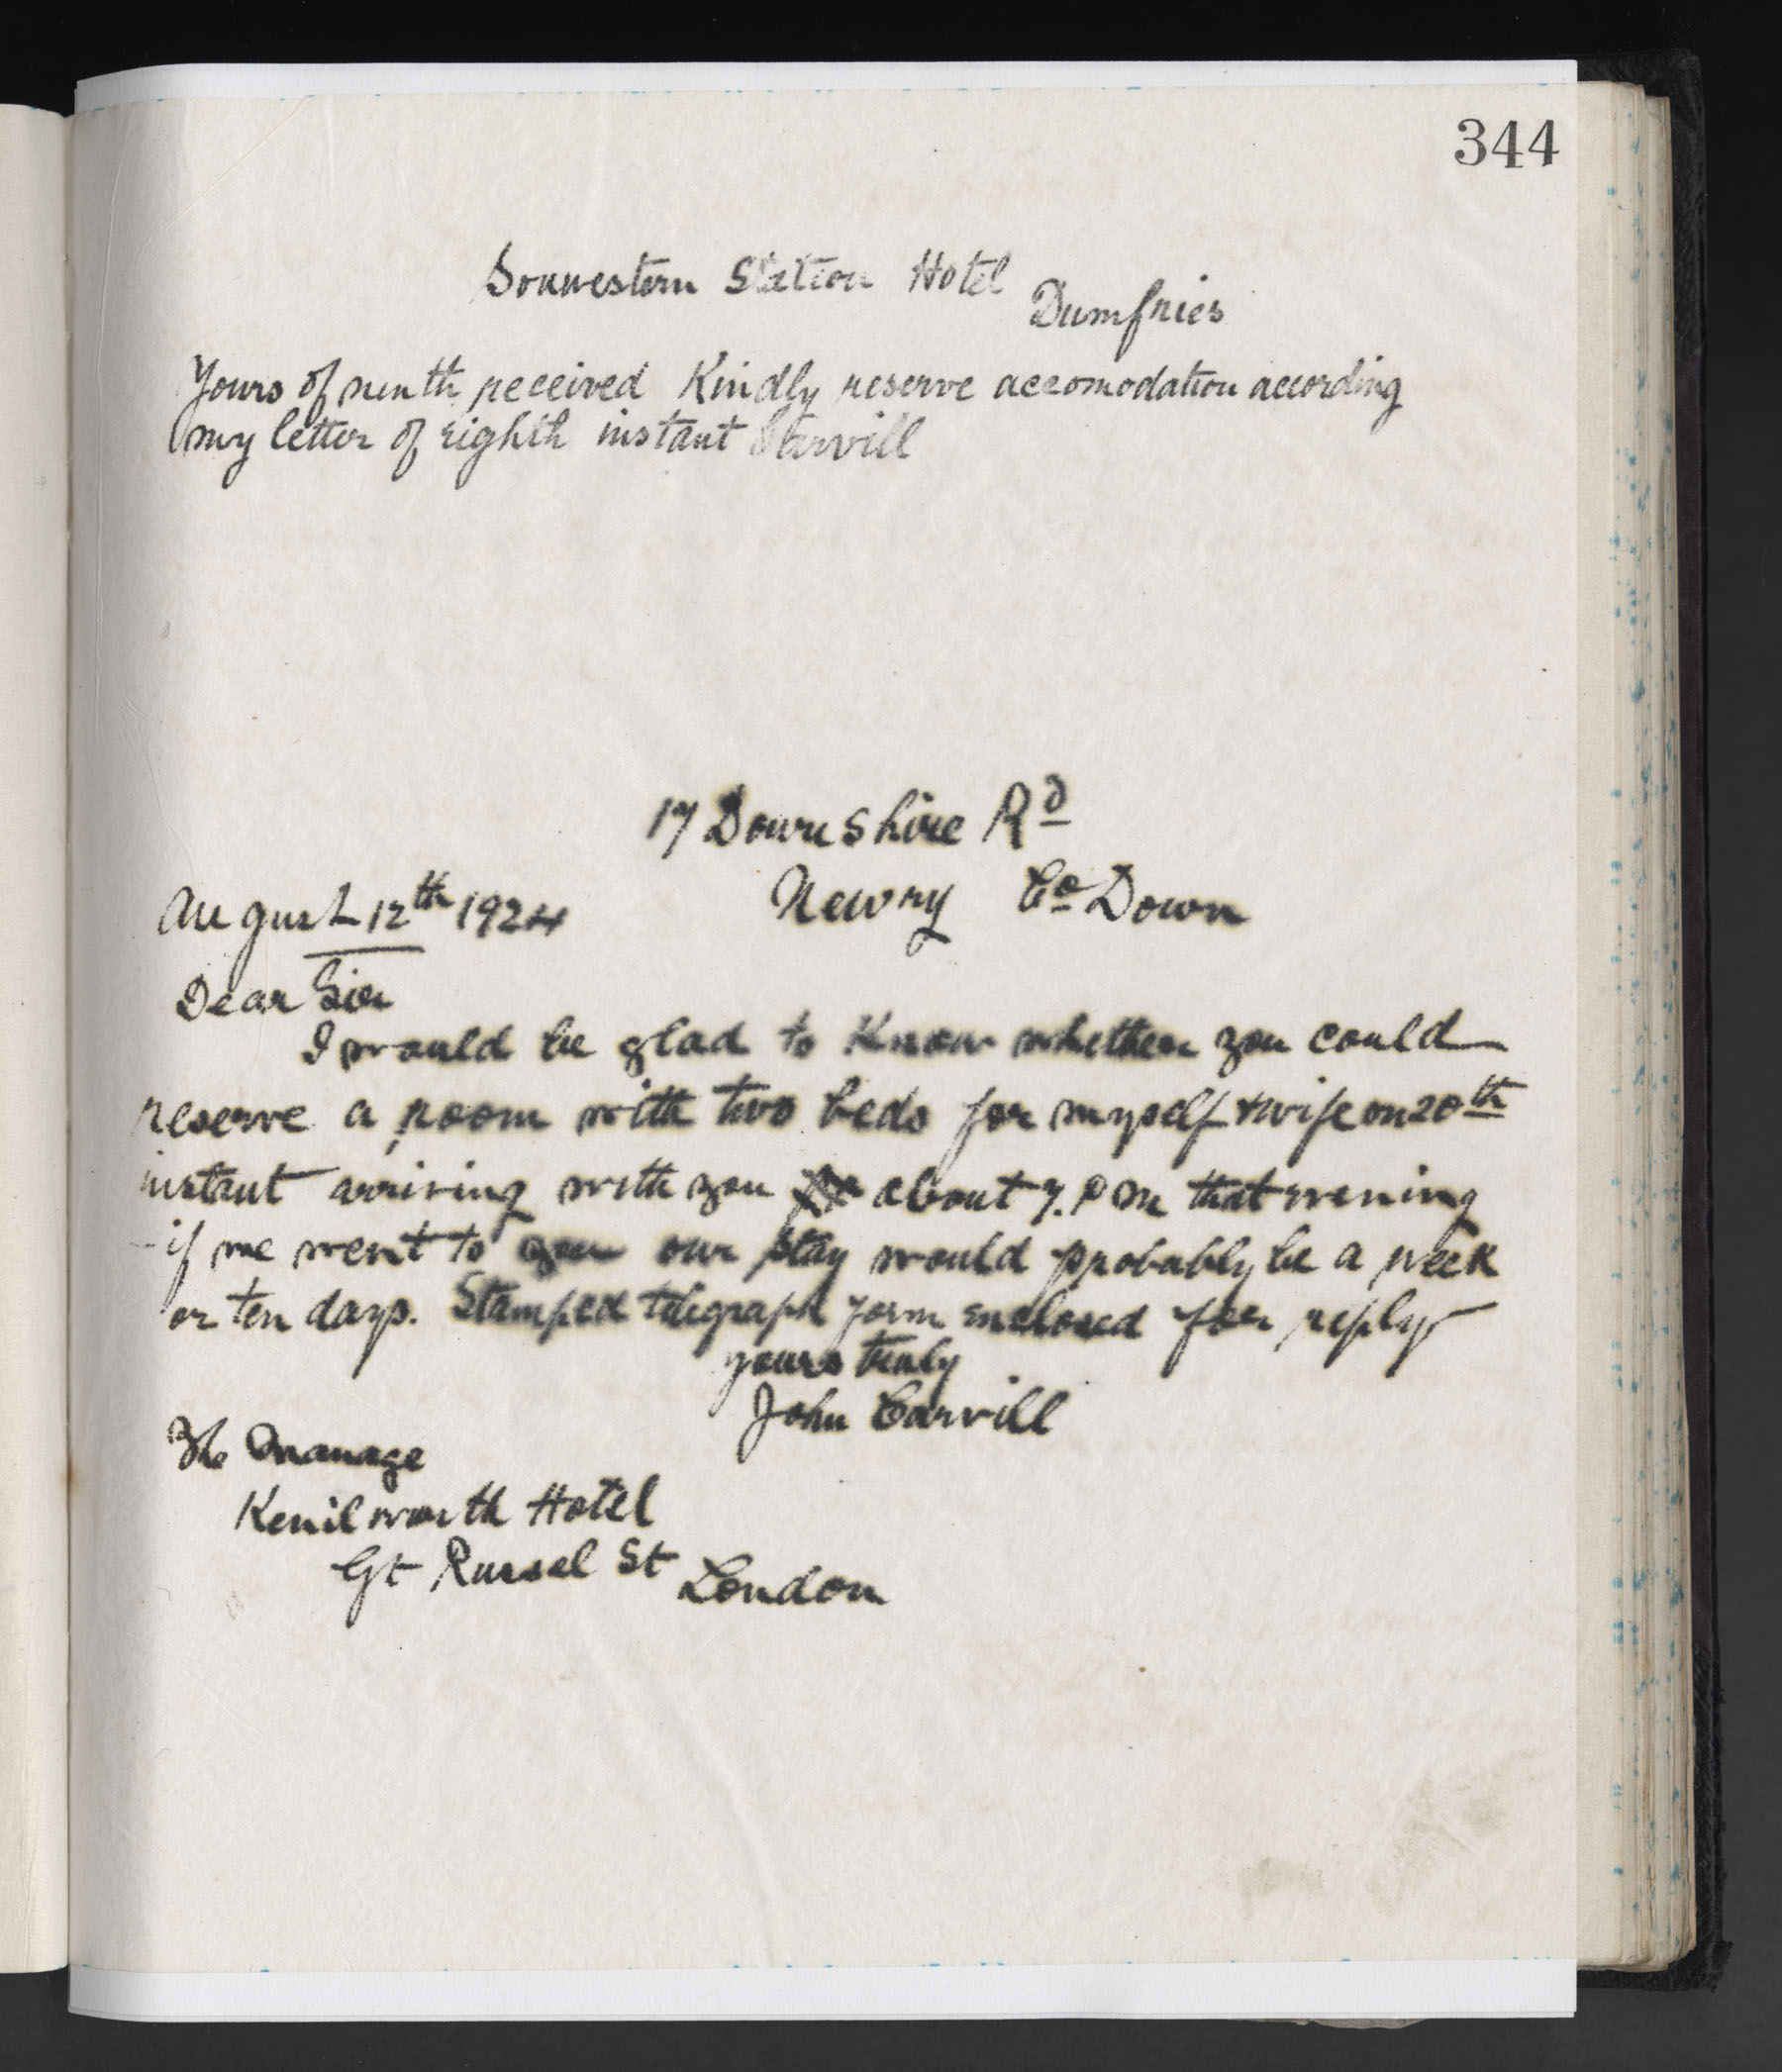 344
Souwestern Station Hotel
Dumfries
Yours of ninth received Kindly reserve accomodation according
my letter of eighth instant Carvill
17 Downshire Rd
Newry Co Down
August 12th 1924
Dear Sir
I would be glad to know whether you could
reserve a room with two beds for myself & wife on 20th
instant arriving with you about 7. P m that evening
- if we went to you our stay would probably be a week
or ten days. Stamped telegraph form enclosed for reply
yours truly
John Carvill
The Manage
Kenilworth Hotel
Gt Russel St London